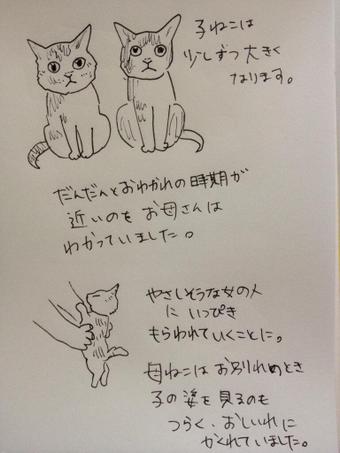 子ねこは
少しずつ大きく
なります。
だんだんとおわかれの時期が
近いのもお母さんは
わかっていました。
やさしそうな女の人
にいっぴき
もらわれていくことに。
母ねこはお別れのとき
子の姿を見るのも
つらく、おしいれに
かくれていました。